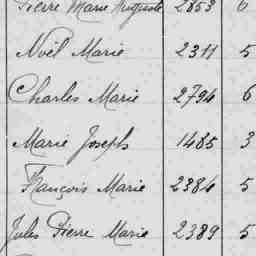 Pierre Marie Auguste 2853 6
Noël Marie 2311 5
Charles Marie 2794 6
Marie Joseph 1485 3
François Marie 2384 5
Jules Pierre Marie 2389 5